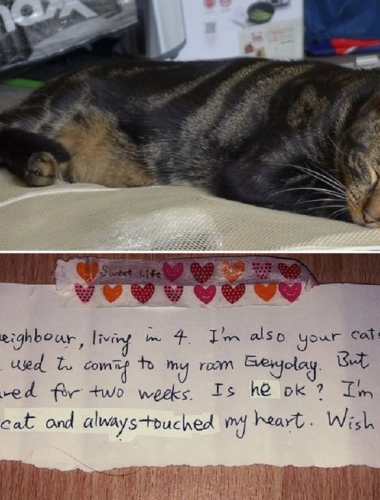 Sweet Life
neighbour, living in 4. I'm also your cat
used to coming to my room Everyday. But
for two weeks. Is he ok? I'm
cat and always touched my heart. Wish